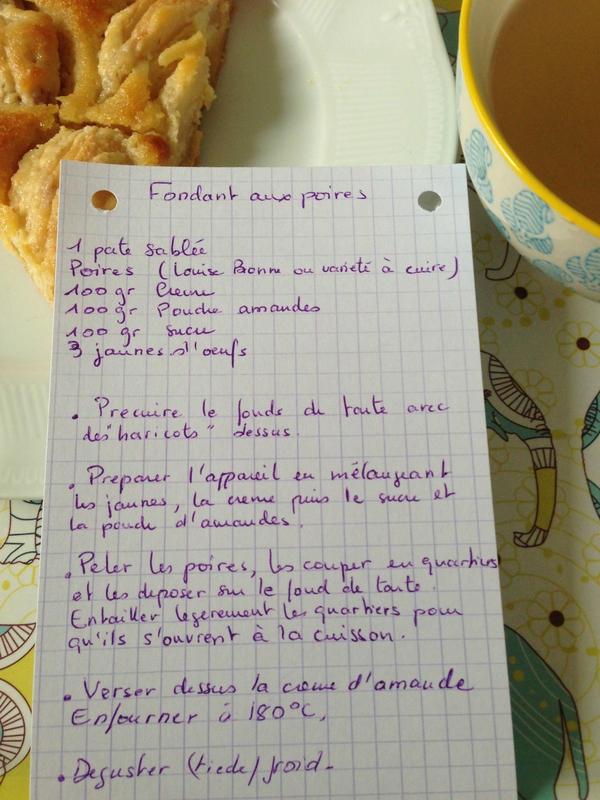 Fondant aux poires
1 pate sablée
Poires (Louise Bonne ou varieté à cuire)
100 gr Creme
100 gr Poudre amandes
100 gr sucre
3 jaunes d'oeufs
. Precuire le fonds de tarte avec
des "haricots" dessus.
. Preparer l'appareil en mélangeant
les jaunes, la creme puis le sucre et
la poudre d'amandes.
. Peler les poires, les couper en quartiers
et les deposer sur le fond de tarte.
Entailler legerement les quartiers pour
qu'ils s'ouvrent à la cuisson.
. Verser dessus la creme d'amande
Enfourner à 180°C.
. Deguster (tiede/froid-